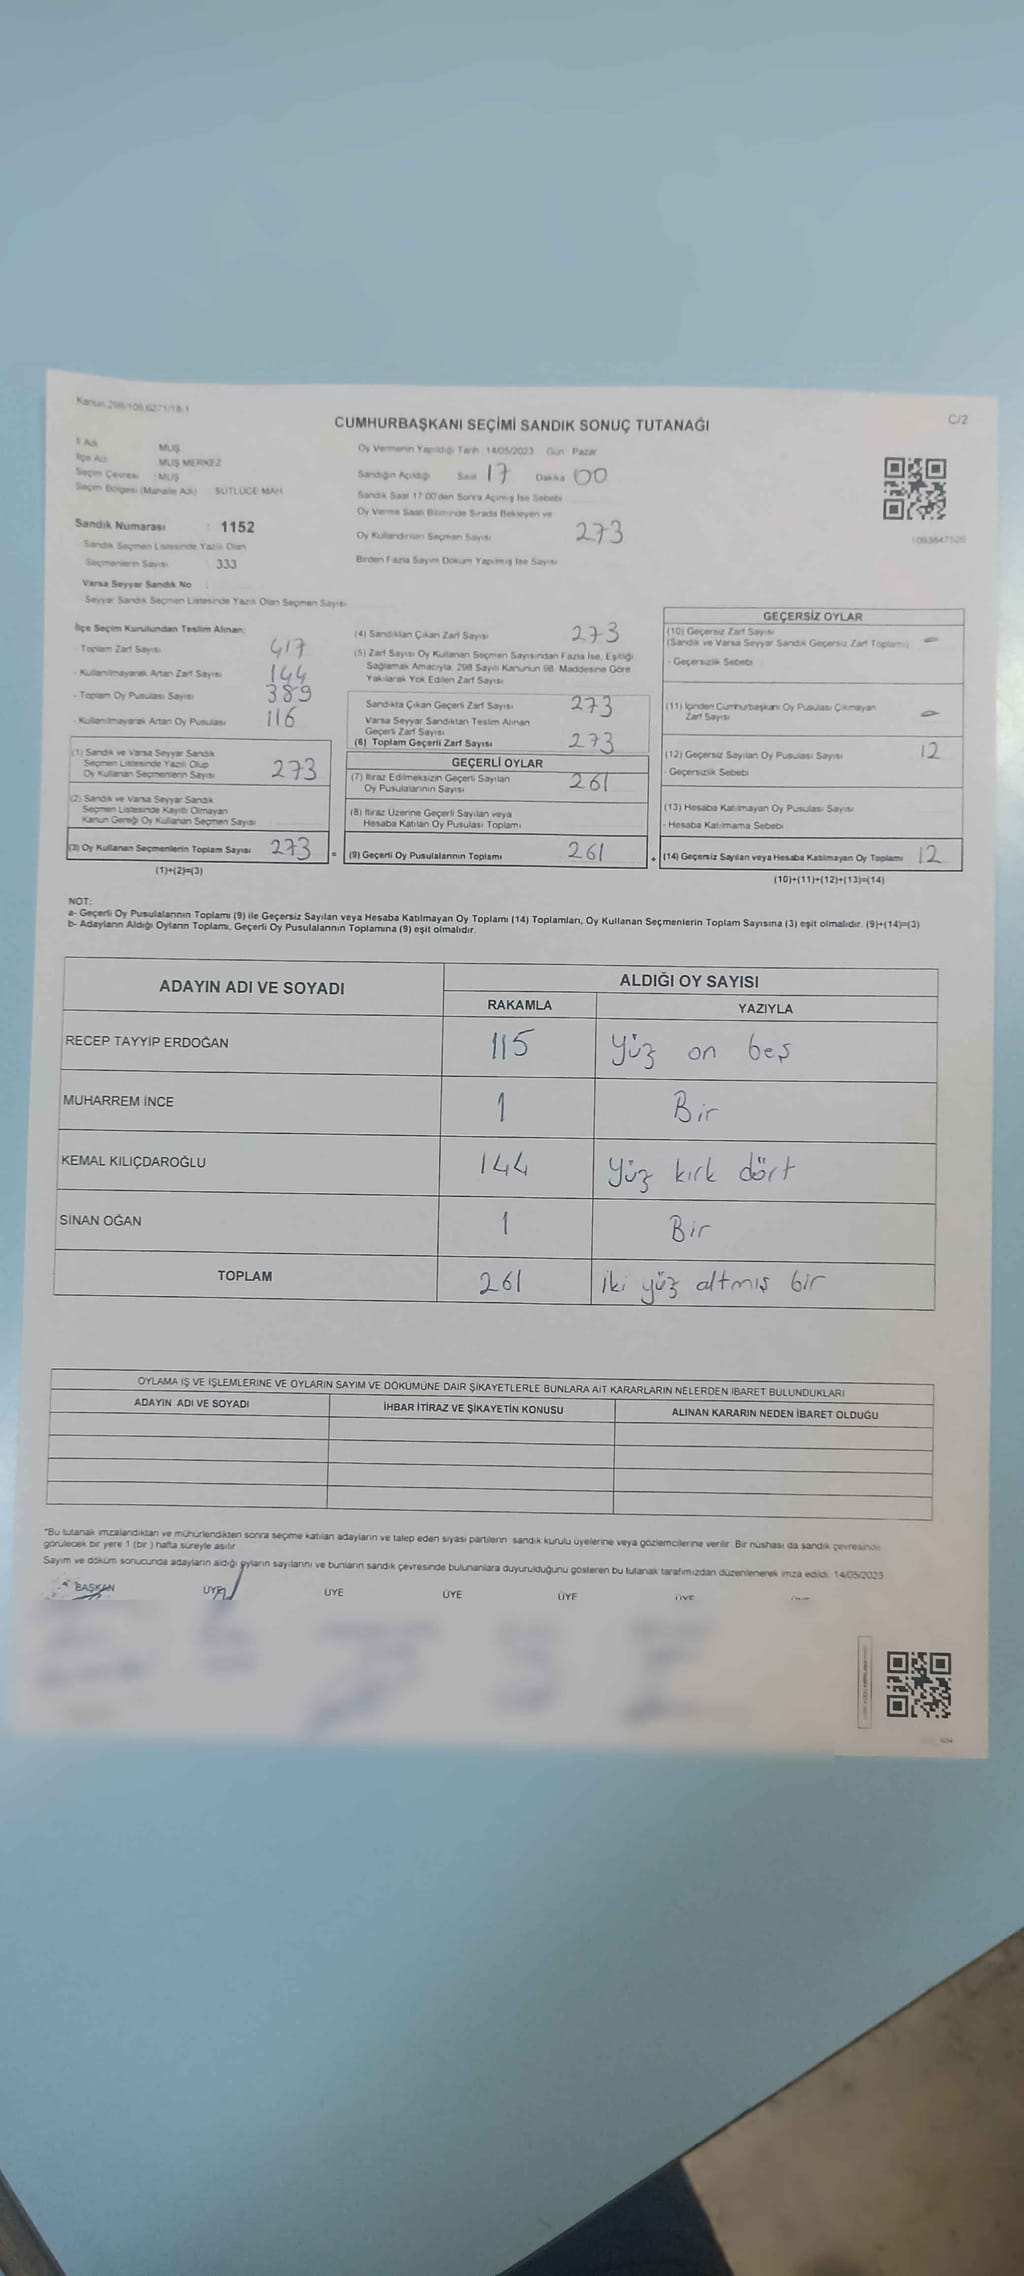 Kanun 298/105 6271/18-1
C/2
CUMHURBAŞKANI SEÇİMİ SANDIK SONUÇ TUTANAĞI
İl Adı MUŞ
İlçe Adı MUŞ MERKEZ
Seçim Çevresi : MUŞ
Seçim Bölgesi (Mahalle Adı) SÜTLÜCE MAH
Sandık Numarası : 1152
Sandık Seçmen Listesinde Yazılı Olan
Seçmenlerin Sayısı 333
Varsa Seyyar Sandık No
Seyyar Sandık Seçmen Listesinde Yazılı Olan Seçmen Sayısı
Oy Vermenin Yapıldığı Tarih 14/05/2023 Gün Pazar
Sandığın Açıldığı Saat 17 Dakika 00
Sandık Saat 17 00'den Sonra Açılmış İse Sebebi
Oy Verme Saati Bitiminde Sırada Bekleyen ve
Oy Kullandırılan Seçmen Sayısı 273
Birden Fazla Sayım Döküm Yapılmış İse Sayısı
1093847526
İlçe Seçim Kurulundan Teslim Alınan:
- Toplam Zarf Sayısı 417
- Kullanılmayarak Artan Zarf Sayısı 144
- Toplam Oy Pusulası Sayısı 389
- Kullanılmayarak Artan Oy Pusulası 116
(1) Sandık ve Varsa Seyyar Sandık
Seçmen Listesinde Yazılı Olup
Oy Kullanan Seçmenlerin Sayısı 273
(2) Sandık ve Varsa Seyyar Sandık
Seçmen Listesinde Kayıtlı Olmayan
Kanun Gereği Oy Kullanan Seçmen Sayısı
(3) Oy Kullanan Seçmenlerin Toplam Sayısı 273 =
(1)+(2)=(3)
(4) Sandıktan Çıkan Zarf Sayısı 273
(5) Zarf Sayısı Oy Kullanan Seçmen Sayısından Fazla İse, Eşitliği
Sağlamak Amacıyla, 298 Sayılı Kanunun 98. Maddesine Göre
Yakılarak Yok Edilen Zarf Sayısı
Sandıkta Çıkan Geçerli Zarf Sayısı 273
Varsa Seyyar Sandıktan Teslim Alınan
Geçerli Zarf Sayısı
(6) Toplam Geçerli Zarf Sayısı 273
GEÇERLİ OYLAR
(7) İtiraz Edilmeksizin Geçerli Sayılan
Oy Pusulalarının Sayısı 261
(8) İtiraz Üzerine Geçerli Sayılan veya
Hesaba Katılan Oy Pusulası Toplamı
(9) Geçerli Oy Pusulalarının Toplamı 261 +
GEÇERSİZ OYLAR
(10) Geçersiz Zarf Sayısı
(Sandık ve Varsa Seyyar Sandık Geçersiz Zarf Toplamı) -
- Geçersizlik Sebebi
(11) İçinden Cumhurbaşkanı Oy Pusulası Çıkmayan
Zarf Sayısı -
(12) Geçersiz Sayılan Oy Pusulası Sayısı 12
- Geçersizlik Sebebi
(13) Hesaba Katılmayan Oy Pusulası Sayısı
- Hesaba Katılmama Sebebi
(14) Geçersiz Sayılan veya Hesaba Katılmayan Oy Toplamı 12
(10)+(11)+(12)+(13)=(14)
NOT:
a- Geçerli Oy Pusulalarının Toplamı (9) ile Geçersiz Sayılan veya Hesaba Katılmayan Oy Toplamı (14) Toplamları, Oy Kullanan Seçmenlerin Toplam Sayısına (3) eşit olmalıdır. (9)+(14)=(3)
b- Adayların Aldığı Oyların Toplamı, Geçerli Oy Pusulalarının Toplamına (9) eşit olmalıdır.
ADAYIN ADI VE SOYADI ALDIĞI OY SAYISI
RAKAMLA YAZIYLA
RECEP TAYYİP ERDOĞAN 115 Yüz on beş
MUHARREM İNCE 1 Bir
KEMAL KILIÇDAROĞLU 144 Yüz kırk dört
SİNAN OĞAN 1 Bir
TOPLAM 261 İki yüz altmış bir
OYLAMA İŞ VE İŞLEMLERİNE VE OYLARIN SAYIM VE DÖKÜMÜNE DAİR ŞİKAYETLERLE BUNLARA AİT KARARLARIN NELERDEN İBARET BULUNDUKLARI
ADAYIN ADI VE SOYADI İHBAR İTİRAZ VE ŞİKAYETİN KONUSU ALINAN KARARIN NEDEN İBARET OLDUĞU
*Bu tutanak imzalandıktan ve mühürlendikten sonra seçime katılan adayların ve talep eden siyasi partilerin sandık kurulu üyelerine veya gözlemcilerine verilir. Bir nüshası da sandık çevresinde
görülecek bir yere 1 (bir ) hafta süreyle asılır
Sayım ve döküm sonucunda adayların aldığı oyların sayılarını ve bunların sandık çevresinde bulunanlara duyurulduğunu gösteren bu tutanak tarafımızdan düzenlenerek imza edildi. 14/05/2023
BAŞKAN ÜYE ÜYE ÜYE ÜYE ÜYE